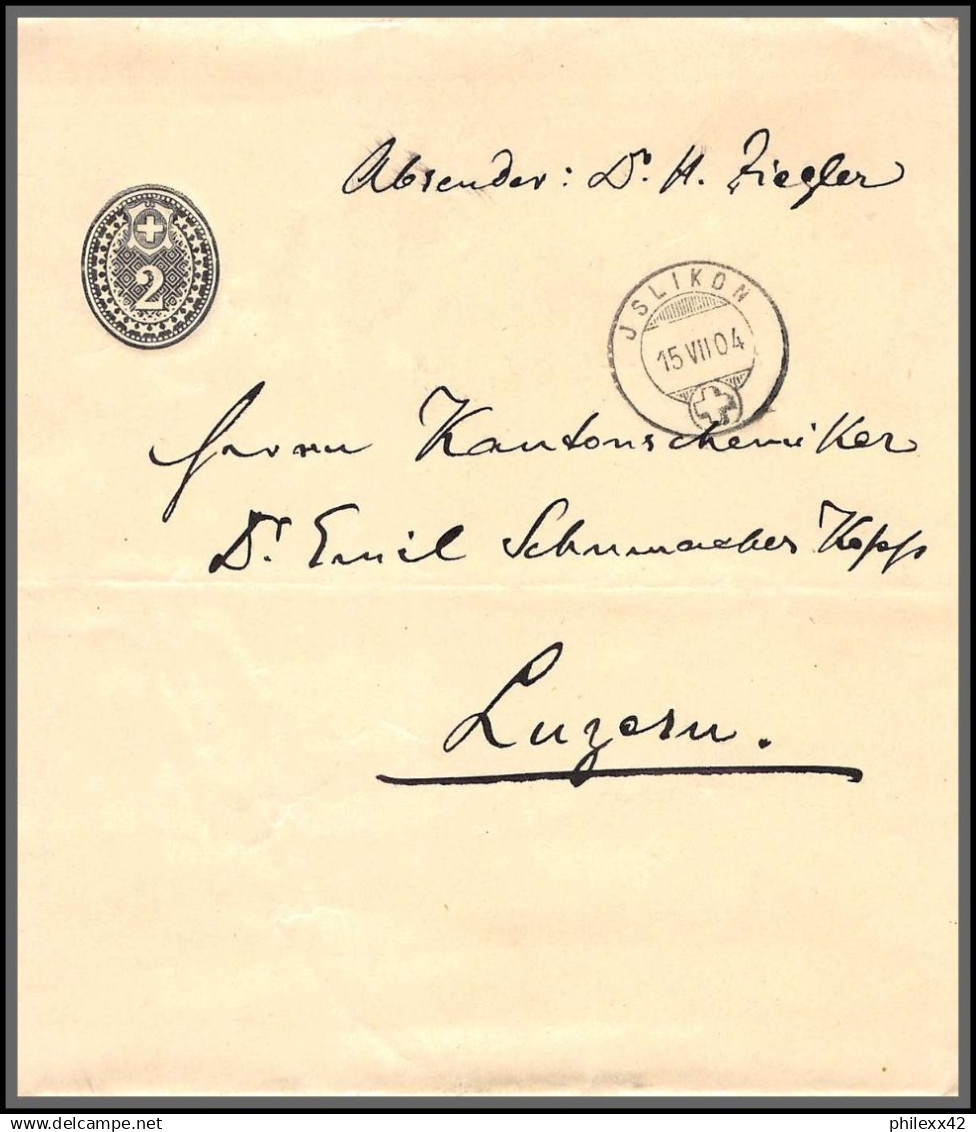 Absender: Dr. H. Ziegler
2
JSLIKON
15 VII 04
Herrn Kantonschemiker
Dr. Emil Schumacher Kopp
Luzern.
delcampe.net
philexx42